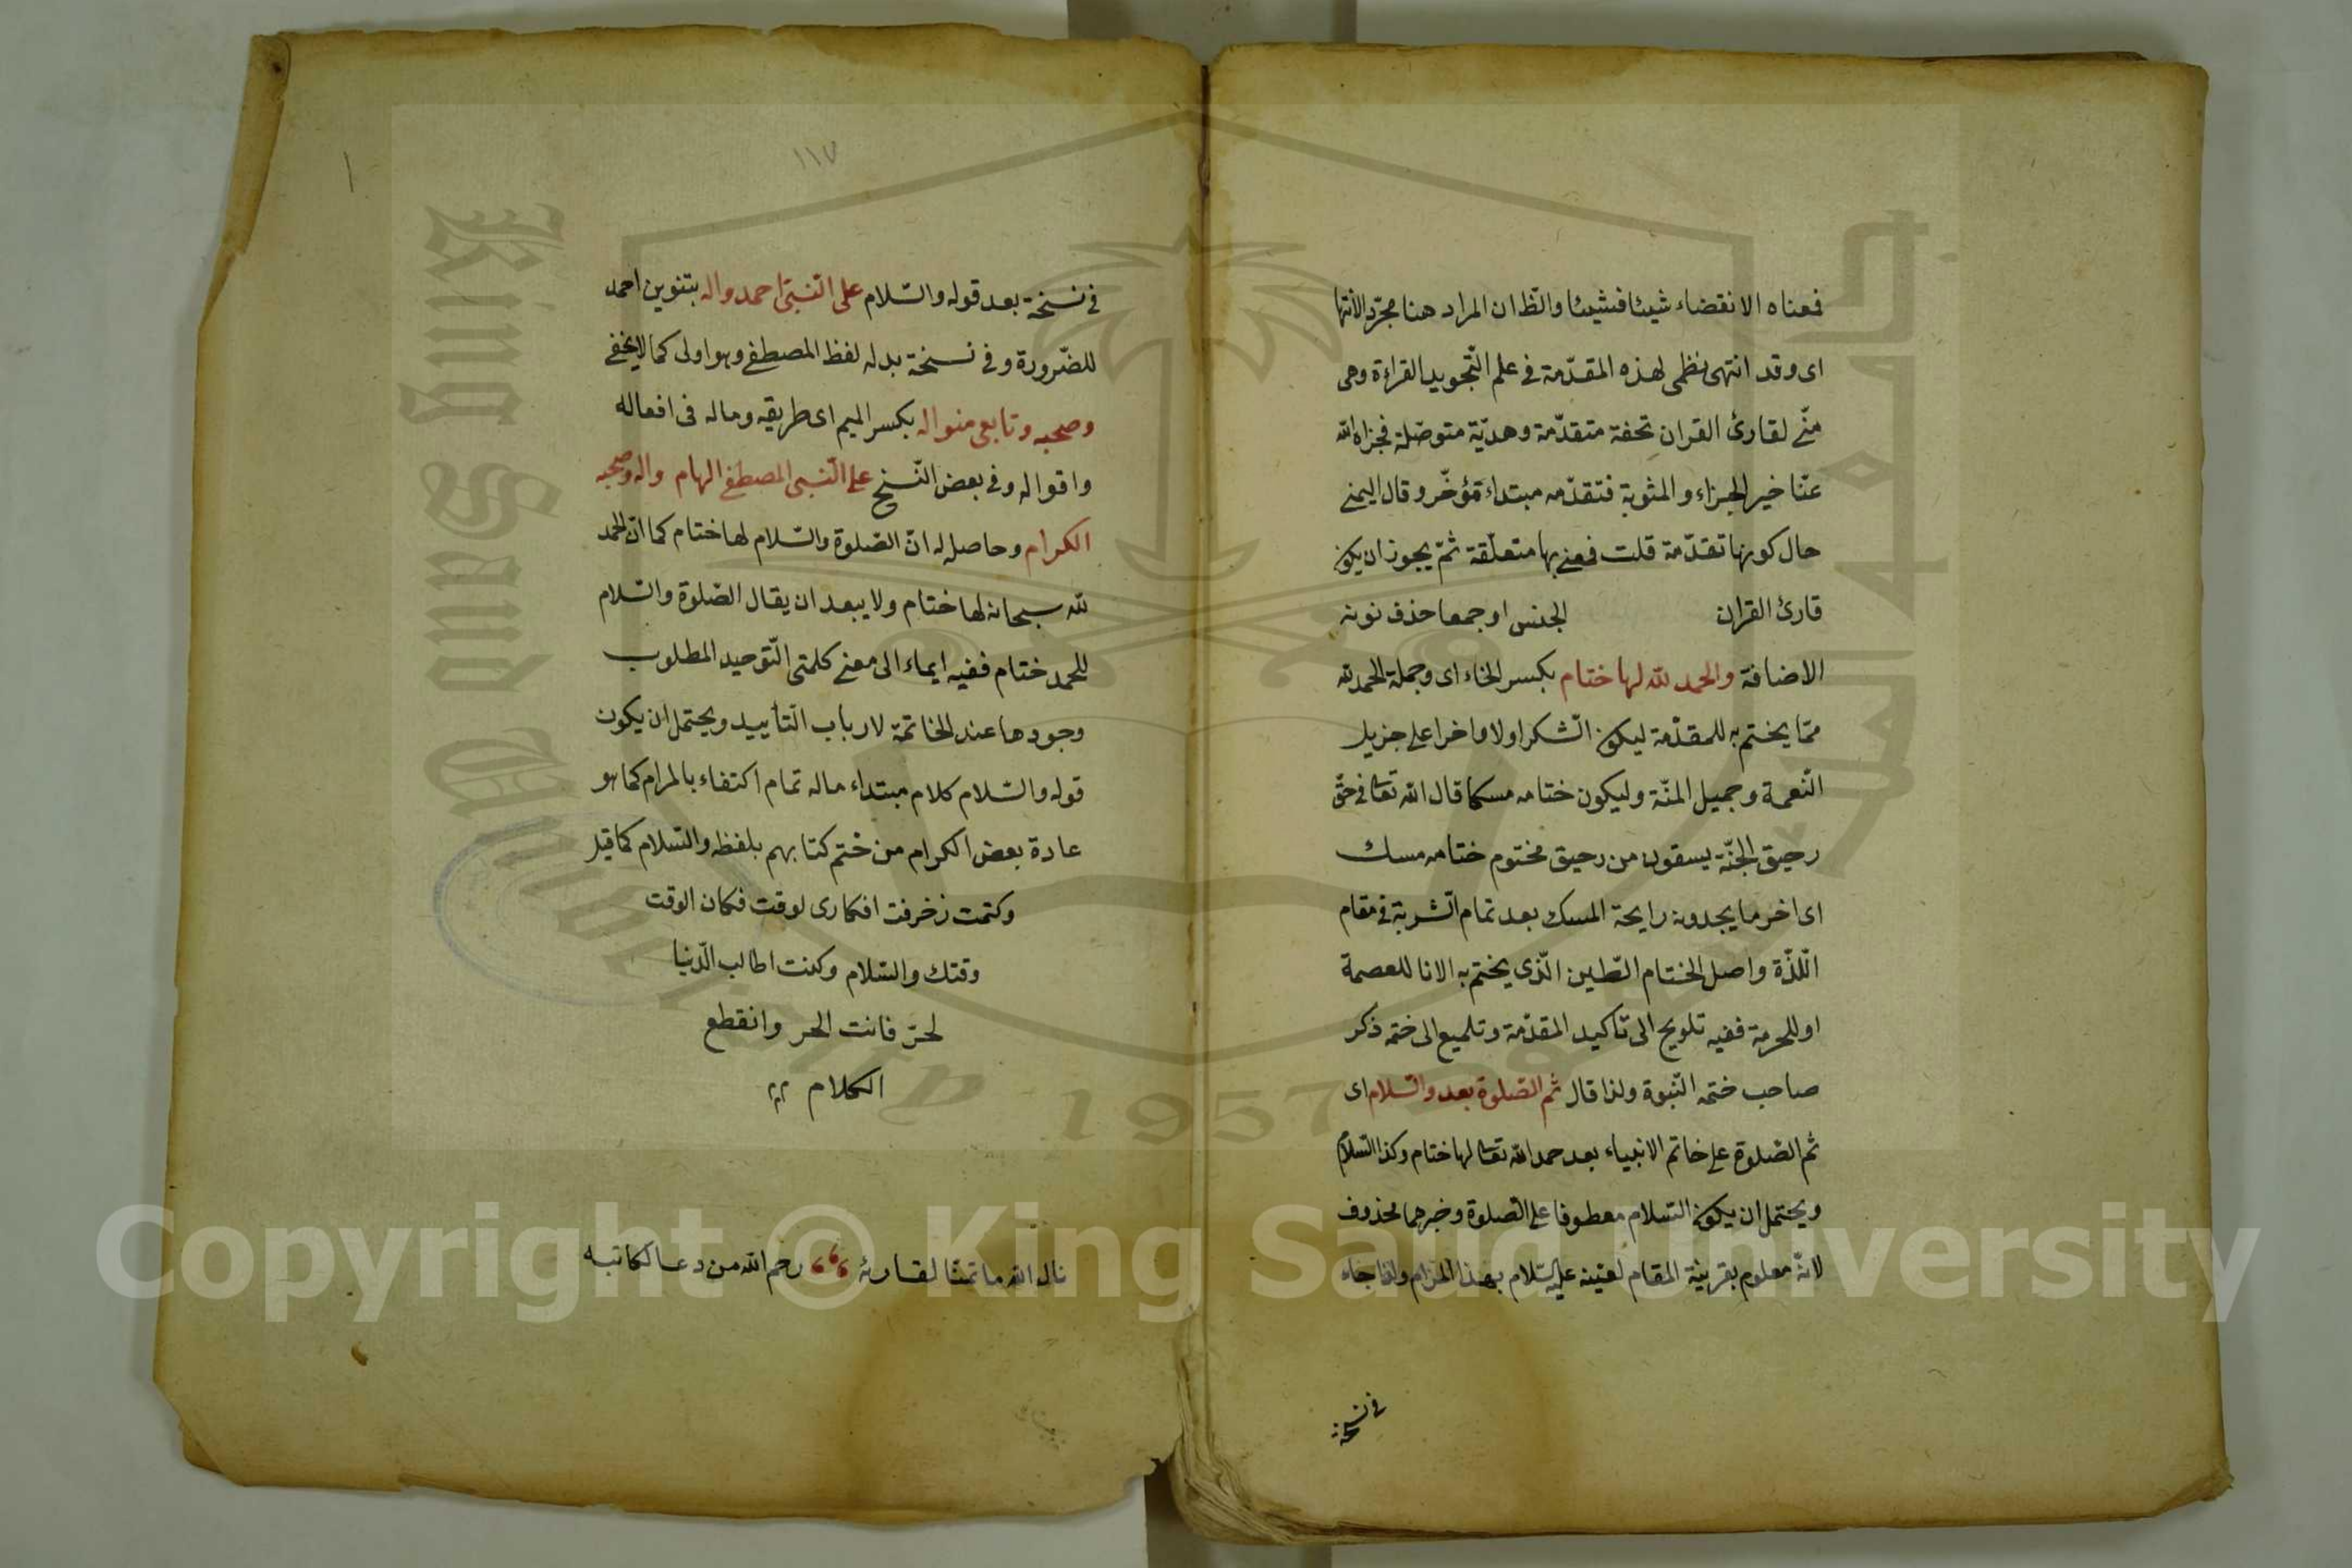 فمعناه الانقضاء شيئا فشيئا والظ ان المراد هنا مجرّد الانتها
اى وقد انتهى نظمى لهذه المقدّمة فى علم التّجويد القراءة وهى
منّى لقارئ القران تحفة متقدّمة وهديّة متوصّلة فجزاه الله
عنّا خير الجزاء والمثوبة فتقدّمه مبتداء مؤخّر وقال اليمنى
حال كونها تقدّمة قلت فمنى بها متعلّقة ثمّ يجوز ان يكون
قارئ القران الجنس او جمعا حذف نونه
الاضافة والحمد لله لها ختام بكسر الخاء اى وجملة الحمد لله
ممّا يختم به للمقدّمة ليكون الشّكر اولا واخرا على جزيل
النّعمة وجميل المنّة وليكون ختامه مسكا قال الله تعا فى حقّ
رحيق الجنّة يسقون من رحيق مختوم ختامه مسك
اى اخر ما يجدونه رايحة المسك بعد تمام الشّربة فى مقام
اللّذّة واصل الختام الطّين الّذى يختم به الانا للعصمة
او للحرمة ففيه تلويح الى تأكيد المقدّمة وتلميع الى ختمه ذكر
صاحب ختمه النّبوة ولذا قال ثم الصّلوة بعد والسّلام اى
ثم الصّلوة على خاتم الانبياء بعد حمد الله تعا لها ختام وكذا السّلام
ويحتمل ان يكون السّلام معطوفا على الصّلوة وخبرهما محذوف
لانّه معلوم بقرينة المقام لعينه عليه السّلام بهذا المرام ولذا جاء
فى نسخة
١١٧
فى نسخة بعد قوله والسّلام على النّبىّ احمد واله بتنوين احمد
للضّرورة وفى نسخة بدله لفظ المصطفى وهو اولى كما لا يخفى
وصحبه وتابعى منواله بكسر الميم اى طريقه وماله فى افعاله
واقواله وفى بعض النّسخ على النّبى المصطفى الهام واله وصحبه
الكرام وحاصله له انّ الصّلوة والسّلام لها ختام كما انّ الحمد
لله سبحانه لها ختام ولا يبعد ان يقال الصّلوة والسّلام
للحمد ختام ففيه ايماء الى معنى كلمتى التّوحيد المطلوب
وجودها عند الخاتمة لارباب التّأييد ويحتمل ان يكون
قوله والسّلام كلام مبتداء ماله تمام اكتفاء بالمرام كما هو
عادة بعض الكرام من ختم كتابهم بلفظه والسّلام كما قيل
وكتمت زخرفت افكارى لوقت فكان الوقت
وقتك والسّلام وكنت اطالب الدّنيا
لحرّ فانت الحر وانقطع
الكلام
نال الله ما تمنّا لقارئه رحم الله من دعا لكاتبه
King Saud University
1957
Copyright © King Saud University